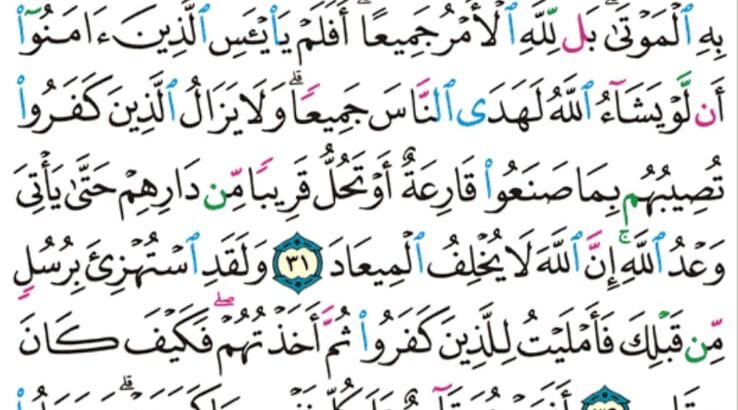 بِهِ ٱلْمَوْتَىٰ ۗ بَل لِّلَّهِ ٱلْأَمْرُ جَمِيعًا ۗ أَفَلَمْ يَا۟يْـَٔسِ ٱلَّذِينَ ءَامَنُوٓا۟
أَن لَّوْ يَشَآءُ ٱللَّهُ لَهَدَى ٱلنَّاسَ جَمِيعًا ۗ وَلَا يَزَالُ ٱلَّذِينَ كَفَرُوا۟
تُصِيبُهُم بِمَا صَنَعُوا۟ قَارِعَةٌ أَوْ تَحُلُّ قَرِيبًا مِّن دَارِهِمْ حَتَّىٰ يَأْتِىَ
وَعْدُ ٱللَّهِ ۚ إِنَّ ٱللَّهَ لَا يُخْلِفُ ٱلْمِيعَادَ ٣١ وَلَقَدِ ٱسْتُهْزِئَ بِرُسُلٍ
مِّن قَبْلِكَ فَأَمْلَيْتُ لِلَّذِينَ كَفَرُوا۟ ثُمَّ أَخَذْتُهُمْ ۖ فَكَيْفَ كَانَ